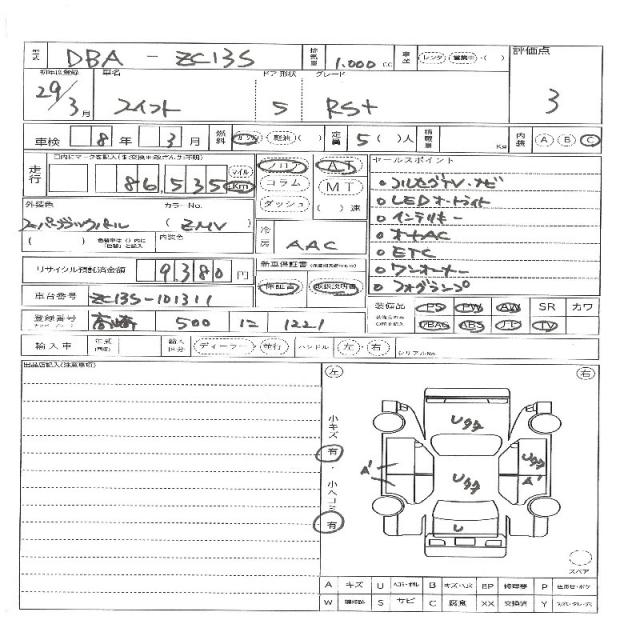 型式 DBA - ZC13S 排気量 1.000 cc 車歴 レンタ・営業中・( ) 評価点
初年度登録 車名 ドア 形状 グレード
29/3月 スイフト 5 RSt 3
車検 8年 3月 燃料 ガソリン・軽油・( ) 定員 5( )人 積載量 Kg 内装 A B C
走行 86,535 マイル Km フロア AT セールスポイント
コラム MT フルセグTV・ナビ
ダッシュ ( )速 LEDオートライト
外装色 カラーNo. インテリキー
スーパーブラックパール (ZMV) 冷房 AAC オートAC
( ) 内装色 ETC
リサイクル預託済金額 9,380 円 新車保証書 ワンオーナー
保証書 取扱説明書 フォグランプ
車台番号 ZC13S-101311 装備品 PS PW AW SR カワ
登録番号 高崎 500 に 1221 ABS TV
輸入車 年式 輸入区分 ディーラー・並行 ハンドル 左・右 シリアルNo.
出品店記入(注意事項) 左 右
小キズ 有 ・ 小ヘコミ 有
Uクク
A' Uクク A'
Uクク
U
スペア
A キズ U ヘコミ・凹 B キズ・ヘコミ EP P
W S サビ C 腐食 XX 交換済 Y